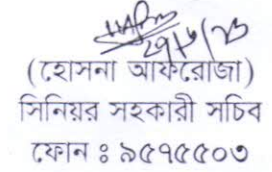 ২৭/৮/২৩
(হোসনা আফরোজা)
সিনিয়র সহকারী সচিব
ফোন ঃ ৯৫৭৫৫০৩